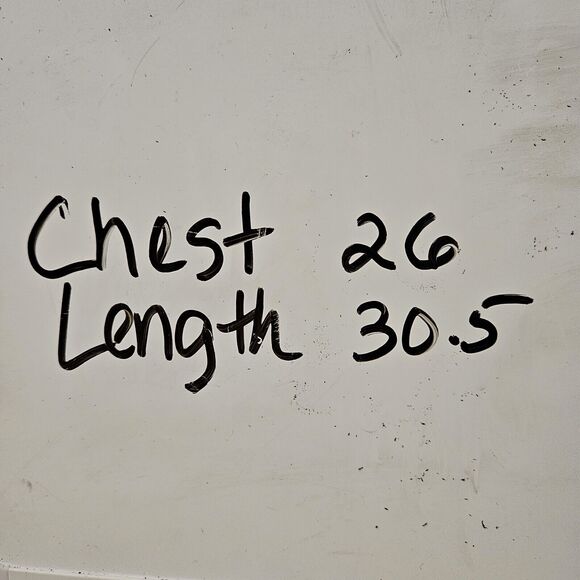 Chest 26
Length 30.5